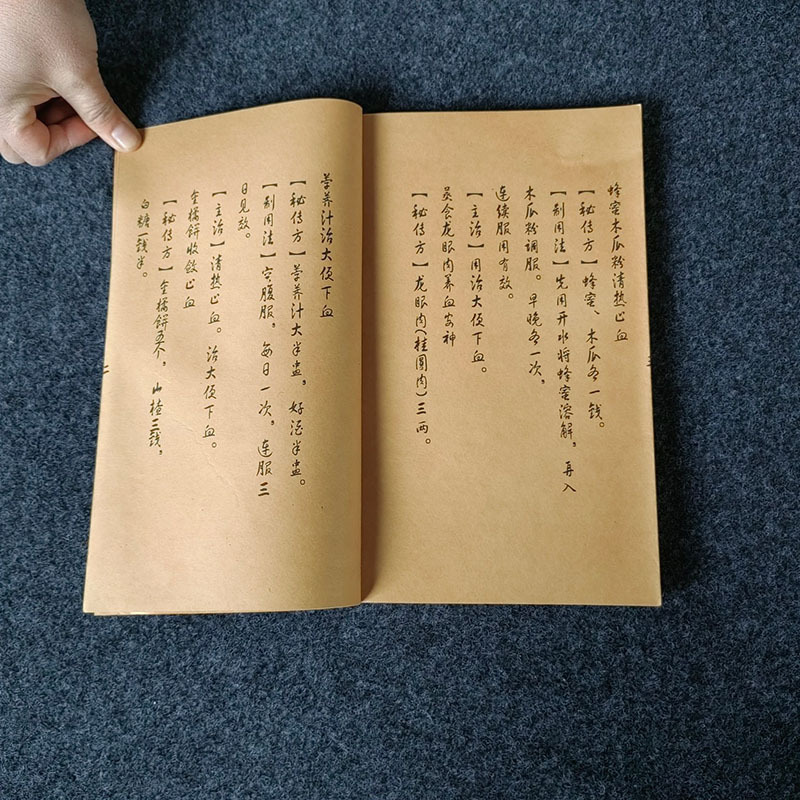 蜂蜜木瓜粉清热止血
【秘传方】蜂蜜、木瓜各一钱。
【制用法】先用开水将蜂蜜溶解，再入
木瓜粉调服。早晚各一次，
连续服用有效。
【主治】用治大便下血。
蒸食龙眼肉养血安神
【秘传方】龙眼肉(桂圆肉)三两。
三
荸荠汁治大便下血
【秘传方】荸荠汁大半盅，好酒半盅。
【制用法】空腹服，每日一次，连服三
日见效。
【主治】清热止血。治大便下血。
金橘饼收敛止血
【秘传方】金橘饼五个，山楂三钱，
白糖一钱半。
二